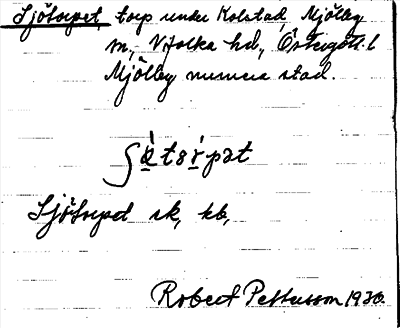 Sjötorpet, torp under Kolstad Mjölby
m, Vifolka hd, Östergötl. l
Mjölby numera stad.
ʃö̀tòrpət
Sjötorpet sk, kb,
Robert Pettersson 1930.